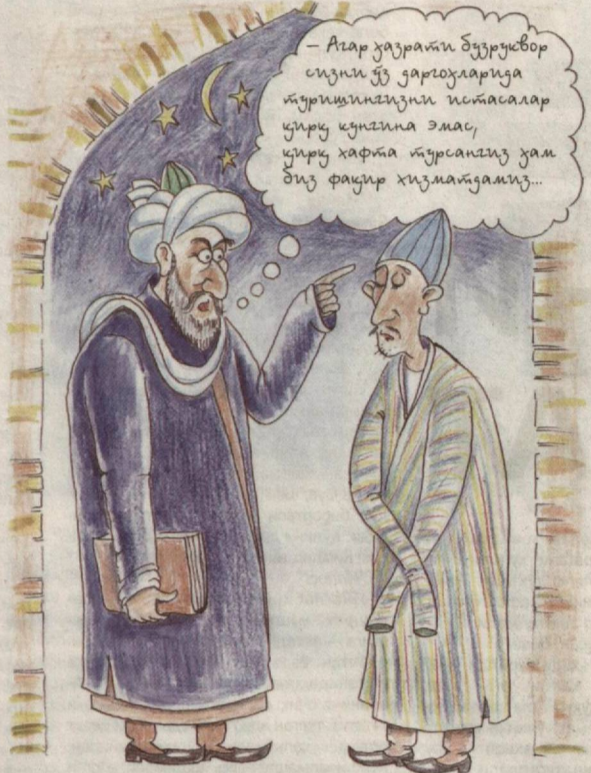 – Агар ҳазрати бузруквор
сизни ўз даргоҳларида
туришингизни истасалар
қирқ кунгина эмас,
қирқ хафта турсангиз ҳам
биз фақир хизматдамиз...